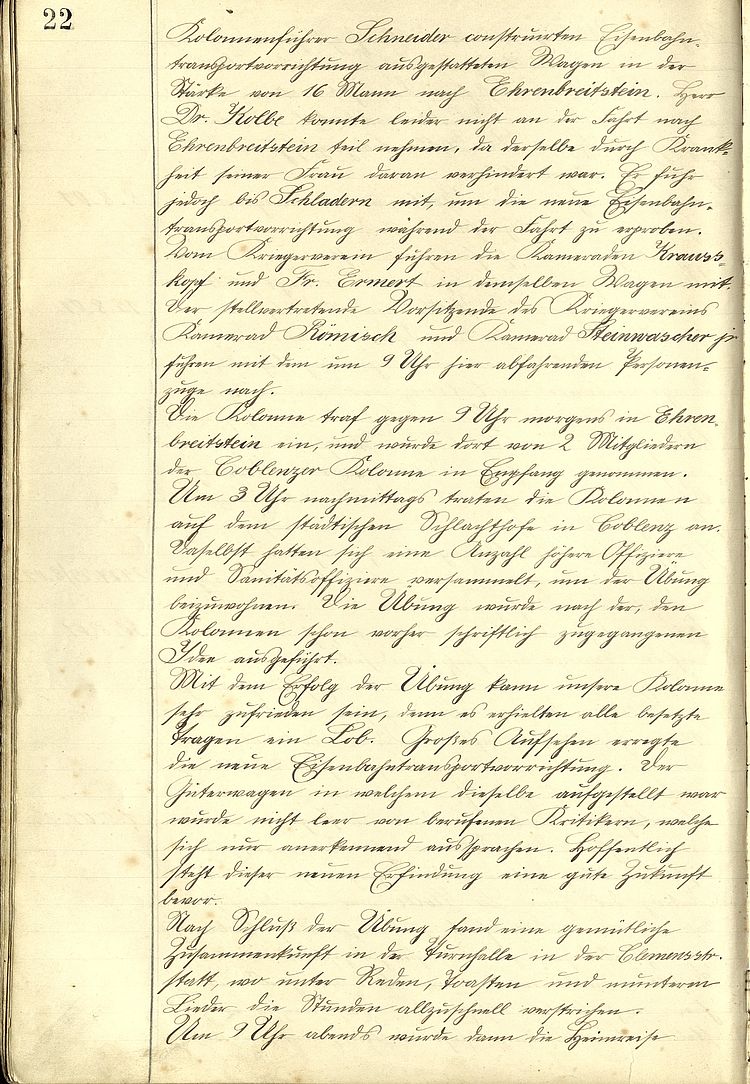 22
Kolonnenführer Schneider construirten Eisenbahn-
transportvorrichtung ausgestatteten Wagen in der
Stärke von 16 Mann nach Ehrenbreitstein. Herr
Dr. Kolbe konnte leider nicht an der Fahrt nach
Ehrenbreitstein teil nehmen, da derselbe durch Krank-
heit seiner Frau daran verhindert war. Er fuhr
jedoch bis Schladern mit, um die neue Eisenbahn-
transportvorrichtung während der Fahrt zu erproben.
Vom Kriegerverein fuhren die Kameraden Krauss-
kopf und Fr. Ermert in demselben Wagen mit.
Der stellvertretende Vorsitzende des Kriegervereins
Kamerad Römisch und Kamerad Steinwascher jr
fuhren mit dem um 9 Uhr hier abfahrenden Personen-
zuge nach.
Die Kolonne traf gegen 9 Uhr morgens in Ehren-
breitstein ein, und wurde dort von 2 Mitgliedern
der Coblenzer Kolonne in Empfang genommen.
Um 3 Uhr nachmittags traten die Kolonnen
auf dem städtischen Schlachthofe in Coblenz an.
Daselbst hatten sich eine Anzahl höhere Offiziere
und Sanitätsoffiziere versammelt, um der Übung
beizuwohnen. Die Übung wurde nach der, den
Kolonnen schon vorher schriftlich zugegangenen
Idee ausgeführt.
Mit dem Erfolg der Übung kann unsere Kolonne
sehr zufrieden sein, denn es erhielten alle besetzte
Tragen ein Lob. Großes Aufsehen erregte
die neue Eisenbahntransportvorrichtung. Der
Güterwagen in welchem dieselbe aufgestellt war
wurde nicht leer von berufenen Kritikern, welche
sich nur anerkennend aussprachen. Hoffentlich
steht dieser neuen Erfindung eine gute Zukunft
bevor.
Nach Schluß der Übung fand eine gemütliche
Zusammenkunft in der Turnhalle in der Clemensstr.
statt, wo unter Reden, Toasten und munteren
Lieder die Stunden allzuschnell verstrichen.
Um 9 Uhr abends wurde dann die Heimreise